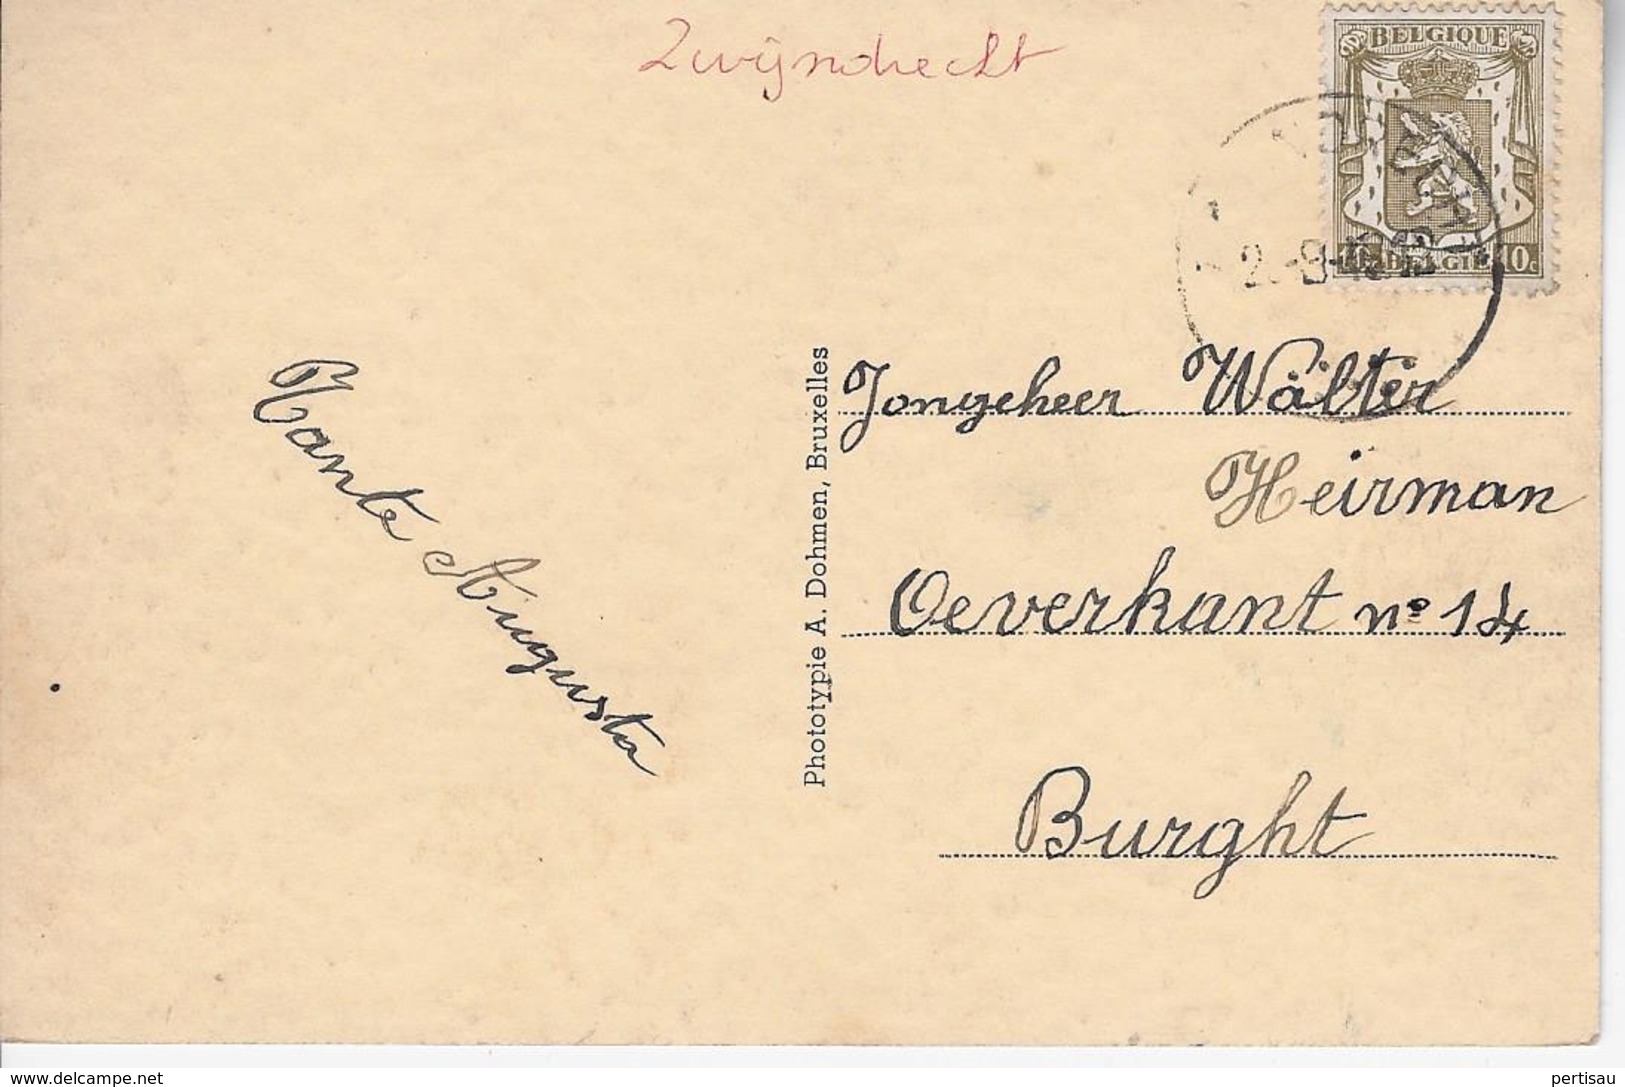 Zwijndrecht
BELGIQUE
10c BELGIE 10c
Jongeheer Wälter
Heirman
Oeverkant n° 14
Burght
Tante Augusta
Photolypie A. Dohmen, Bruxelles
www.delcampe.net
pertisau